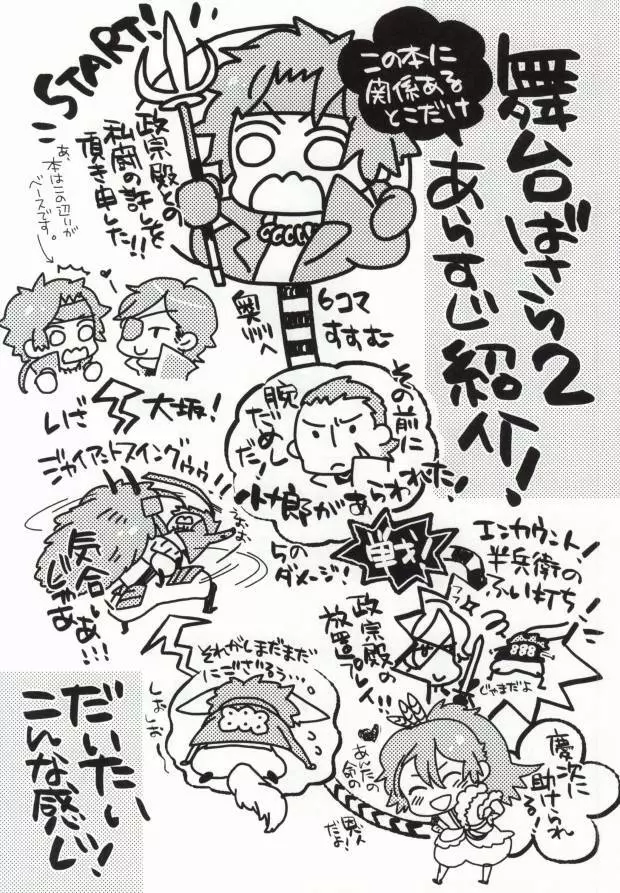 舞台ばさら2
あらすじ紹介!
この本に
関係ある
とこだけ
START!
政宗殿との
私闘の許しを
頂き申した!!
あ、
本はこの辺りが
ベースです。
6コマ
すすむ
奥州へ
その前に
腕
だめしだ!
小十郎があらわれた!
戦!
5のダメージ!
エンカウント!
半兵衛の
ふい打ち!
政宗殿の
放置プレイ!!
じゃまだよ
慶次に
助けられる!
あんたの
気の
恩人
だよ!
それがしまだまだ
にござるうぅ…
しおしお
いざ
大坂!
ジャイアントスイングゥゥ!!
気合いじゃ
あぁ!!!
だいたい
こんな感じ!